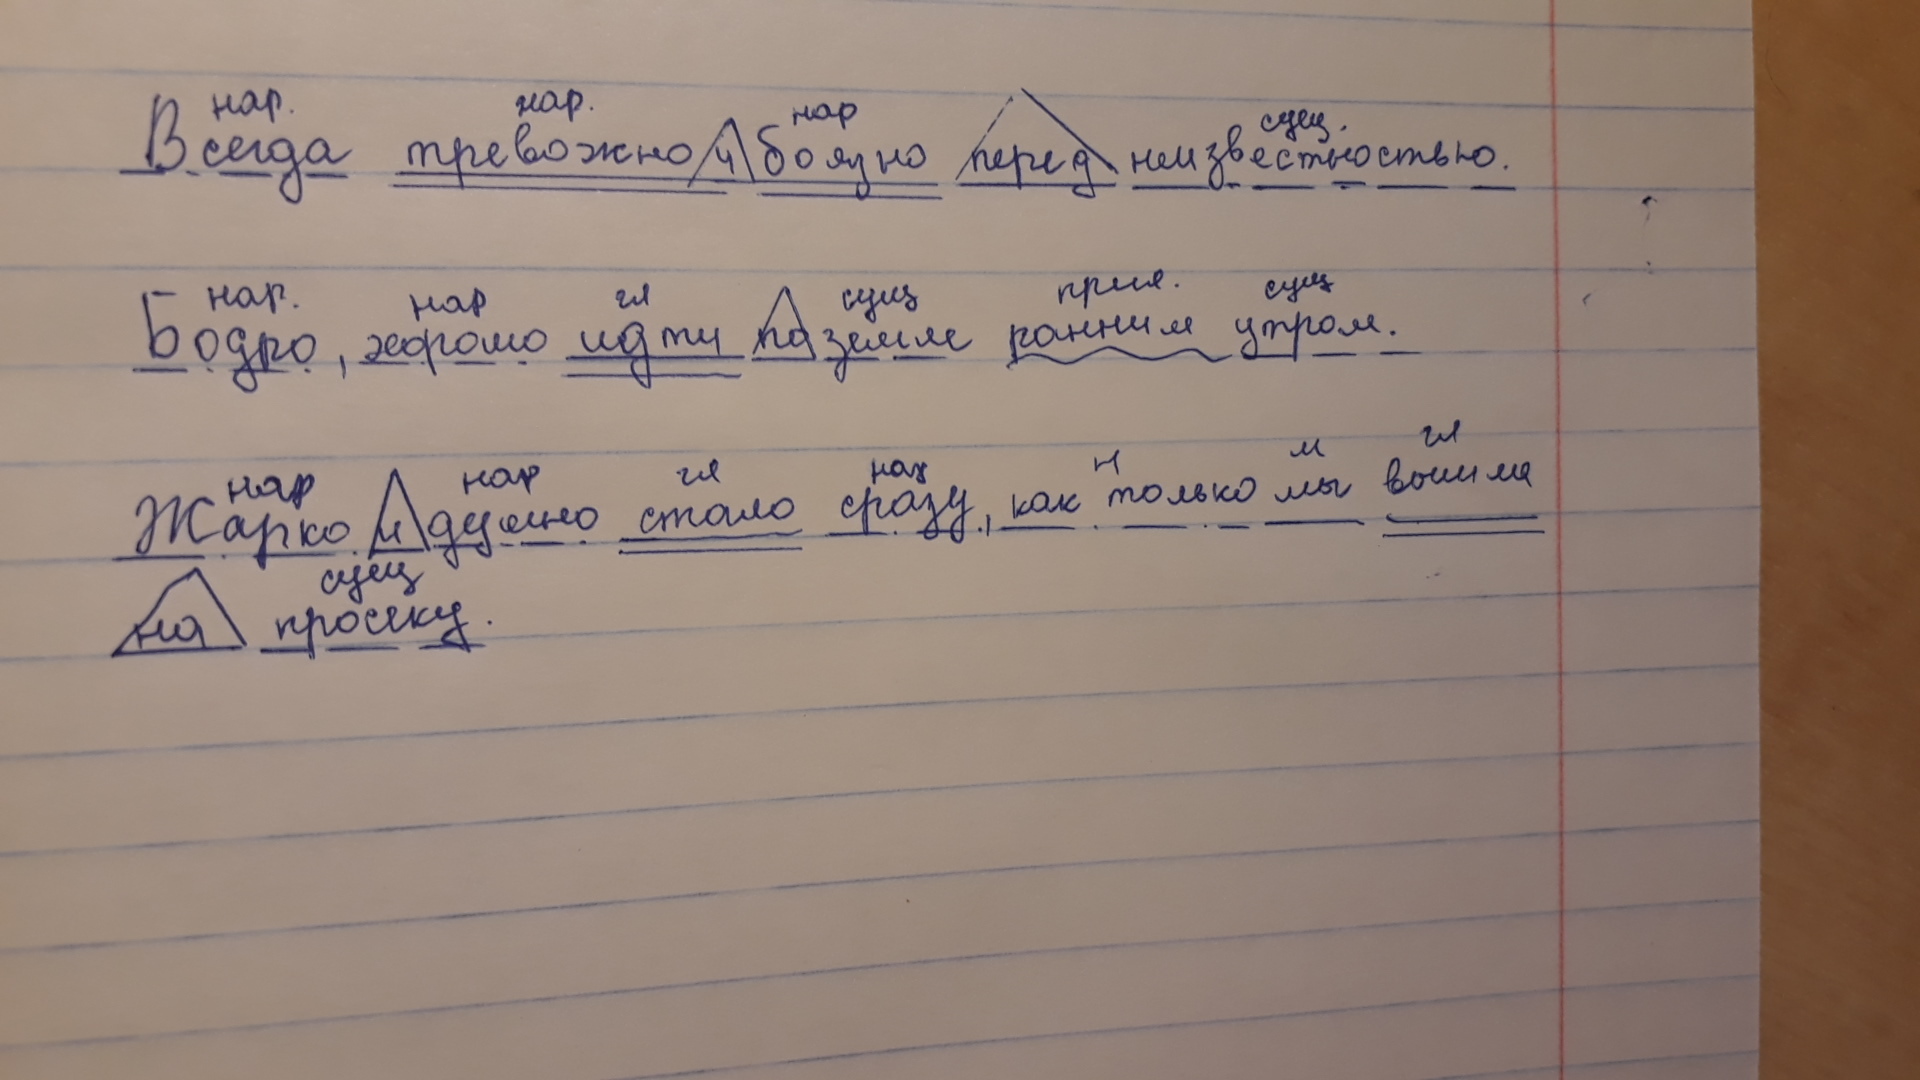 нар. нар. нар сущ.
Всегда тревожно и боязно перед неизвестностью.
нар. нар гл сущ прил. сущ
Бодро, хорошо идти по земле ранним утром.
нар нар гл нар н м гл
Жарко и душно стало сразу, как только мы вышли
сущ
на просеку.